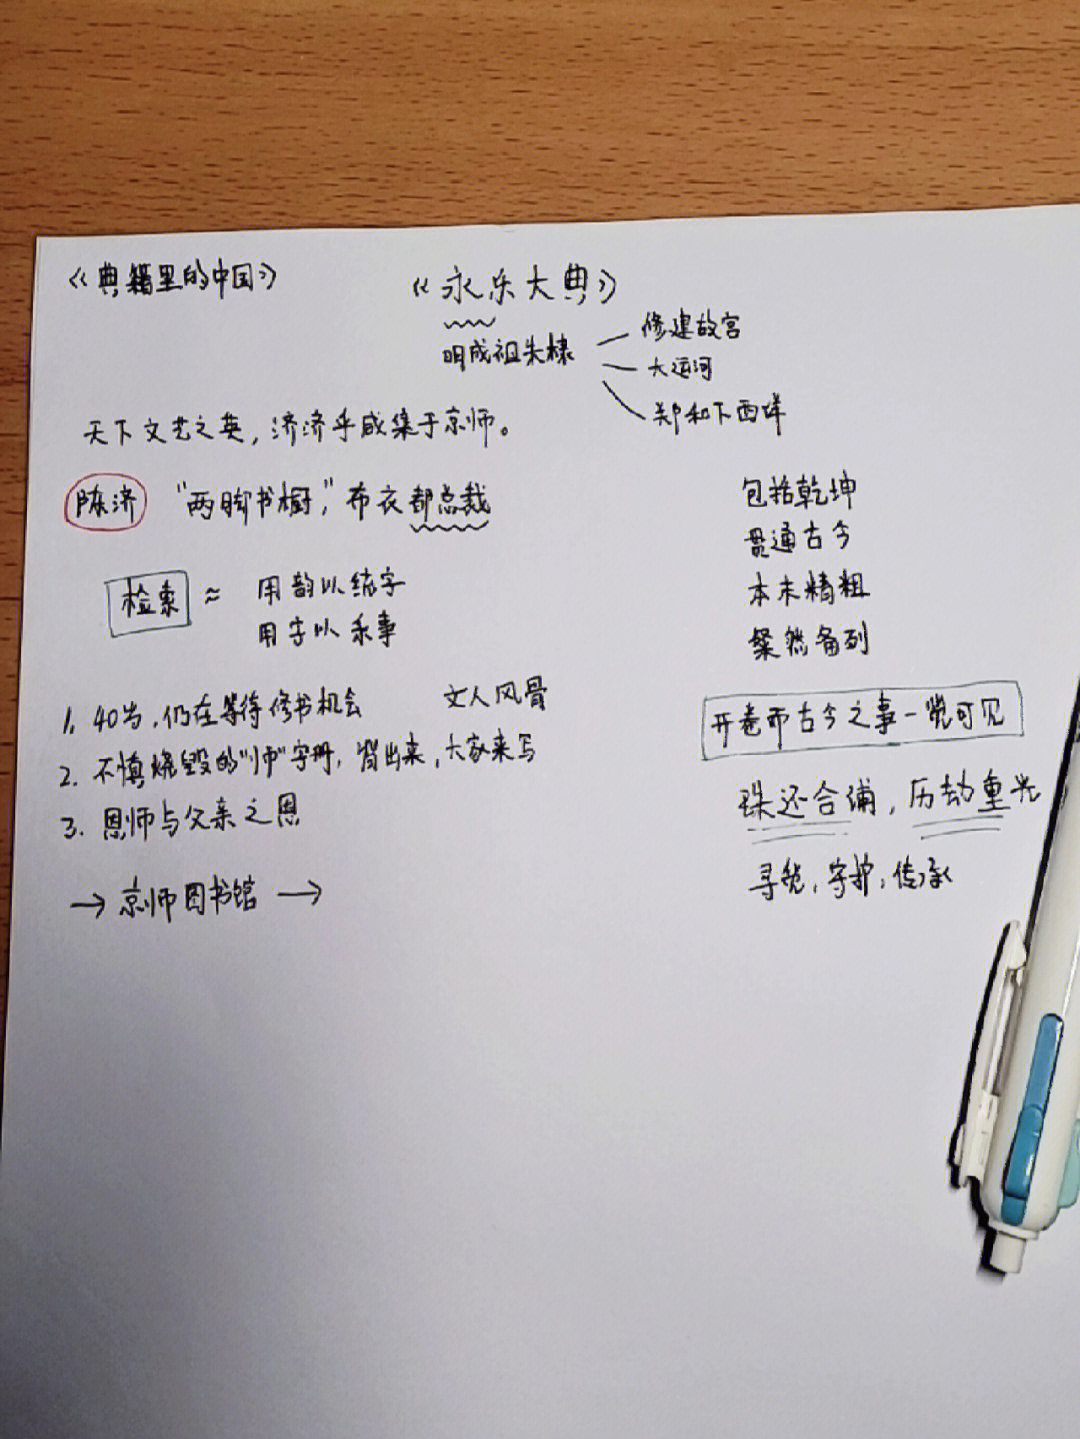 《典籍里的中国》
《永乐大典》
明成祖朱棣
修建故宫
大运河
郑和下西洋
天下文艺之英，济济乎咸集于京师。
陈济 “两脚书橱，”布衣都总裁
检索 ≈ 用韵以统字
用字以系事
包括乾坤
贯通古今
本末精粗
粲然备列
1. 40岁，仍在等待修书机会 文人风骨
2. 不慎烧毁的“师”字册，背出来，大家来写
3. 恩师与父亲之恩
→ 京师图书馆 →
开卷而古今之事一览可见
珠还合浦，历劫重光
寻觅，守护，传承